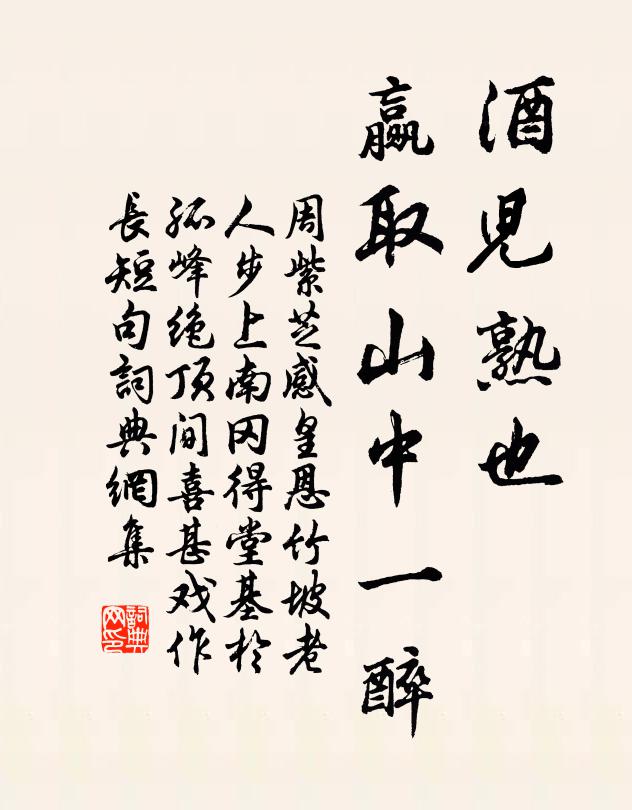 酒児熟也
贏取山中一醉
周紫芝感皇恩竹坡老
人步上南冈得堂基於
孤峰绝顶间喜甚戏作
長短句詞典網集
詞典
网印